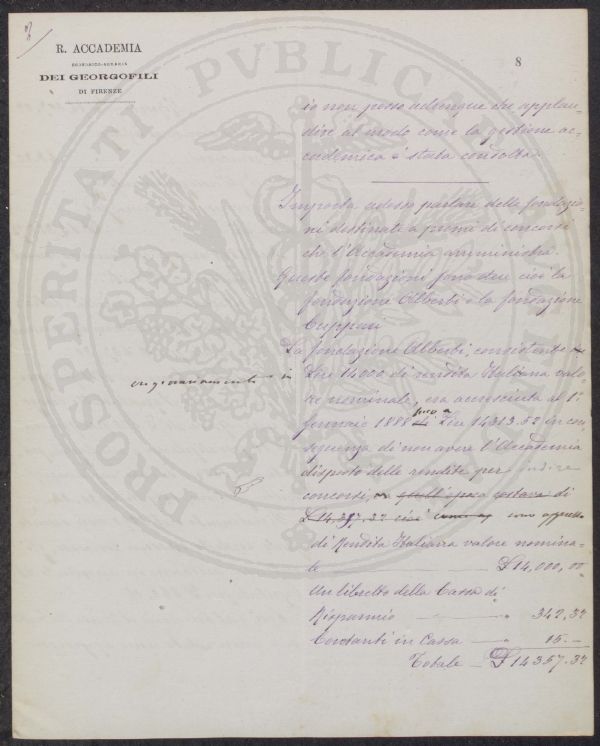 8
R. ACCADEMIA
ECONOMICO-AGRARIA
DEI GEORGOFILI
DI FIRENZE
8
PROSPERITATI PUBLICAE
io non posso adunque che applau-
dire al modo come la gestione ac-
cademica è stata condotta.
Importa adesso parlare delle fondazio-
ni destinate a premi di concorsi
che l'Accademia amministra.
Queste fondazioni sono due cioè la
fondazione Alberti e la fondazione
Cuppari
La fondazione Alberti, consistente
originariamente in
Lire 14000 di rendita Italiana valo-
re nominale, era accresciuta al 1º
fino a
Gennaio 1888 di Lire 14313.52 in con
seguenza di non avere l'Accademia
disposto delle rendite per indire
concorsi, quell'epoca constava di
£ 14,357.32 cioè come appresso
di Rendita Italiana valore nomina-
le £ 14,000,00
Un libretto della Cassa di
Risparmio " 342,32
Contanti in Cassa " 15.-
Totale £ 14357.32